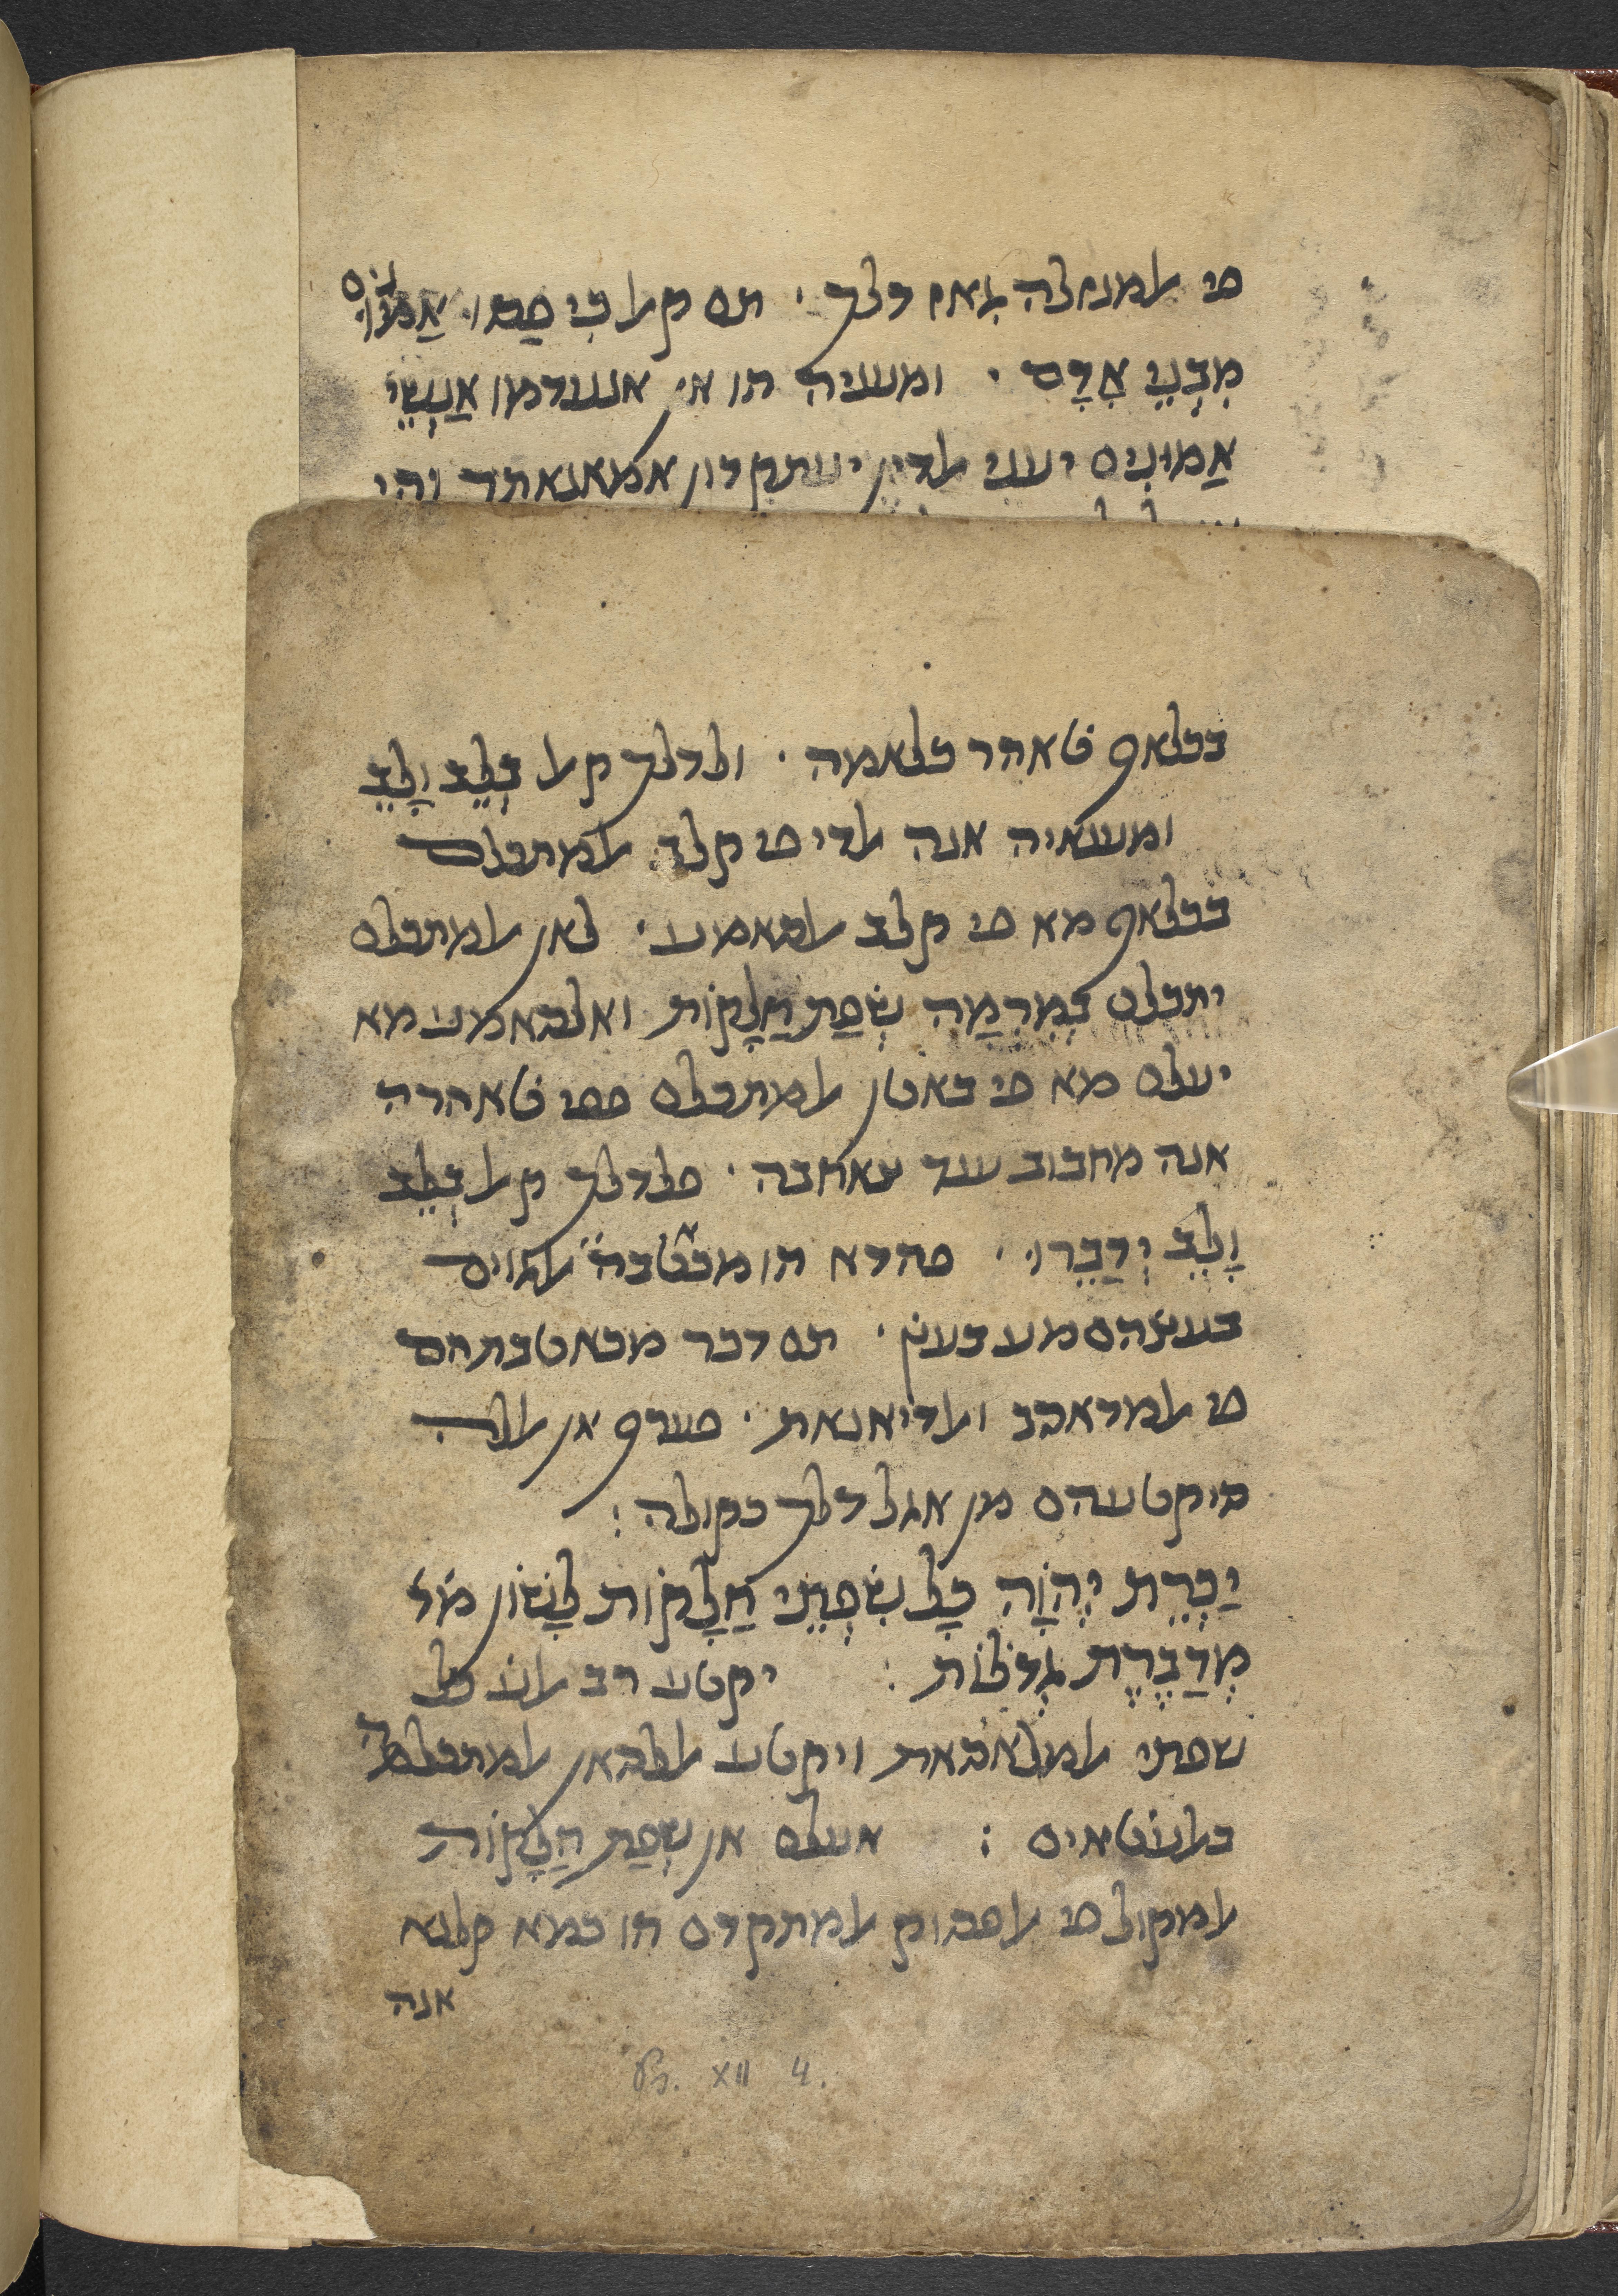 פי אלמנזלה גאז דלך · תם קאל כִּי פַסּוּ אֱמוּנִים
מִבְּנֵי אָדָם · ומעניה הו אי אנעדמו אַנְשֵׁי
אֱמוּנִים יעני אלדין יעתקדון אמאנאתך והי
בכלאף טאהר כלאמה · ולדלך קאל בְּלֵב וָלֵב
ומענאיה אנה אלדי פי קלב אלמתכלם
בכלאף מא פי קלב אלסאמע · לאן אלמתכלם
יתכלם בְמִרְמָה שְׂפַת חֲלָקוֹת ואלסאמע מא
יעלם מא פי באטן אלמתכלם ففي טאהרה
אנה מחבוב ענד צאחבה · פלדלך קאל בְּלֵב
וָלֵב יְדַבֵּרוּ · פהדא הו מכאטבה אלגוים
בעצהם מע בעץ · תם דכר מכאטבתהם
פי אלמדאהב ואלדיאנאת · פערף אן אללה
סיקטעהם מן אגל דלך בקולה :
יַכְרֵת יְהוָה כָּל שִׂפְתֵי חֲלָקוֹת לָשׁוֹן
מְדַבֶּרֶת גְּדֹלוֹת : יקטע רב אלע׳ כל
שפתי אלמלאסאת ויקטע אללסאן אלמתכלמה
באלעטאים : אעלם אן שְׂפַת חֲלָקוֹת
אלמקול פי אלפסוק אלמתקדם הו כמא קלנא
אנה
Ps. XII 4.